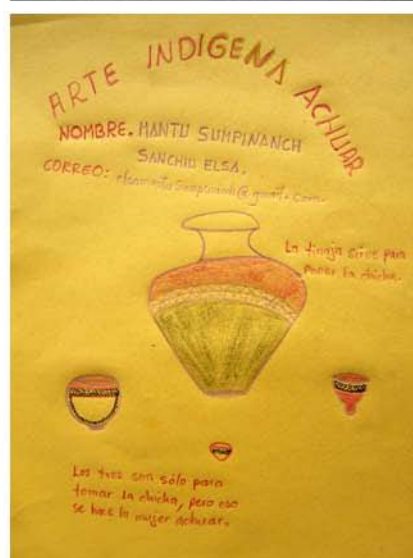 ARTE INDIGENA ACHUAR
NOMBRE. MANTU SUMPINANCH
SANCHIU ELSA.
CORREO:
La tinaja sirve para
poner la chicha.
Los tres son sólo para
tomar la chicha, pero eso
se hace la mujer achuar.